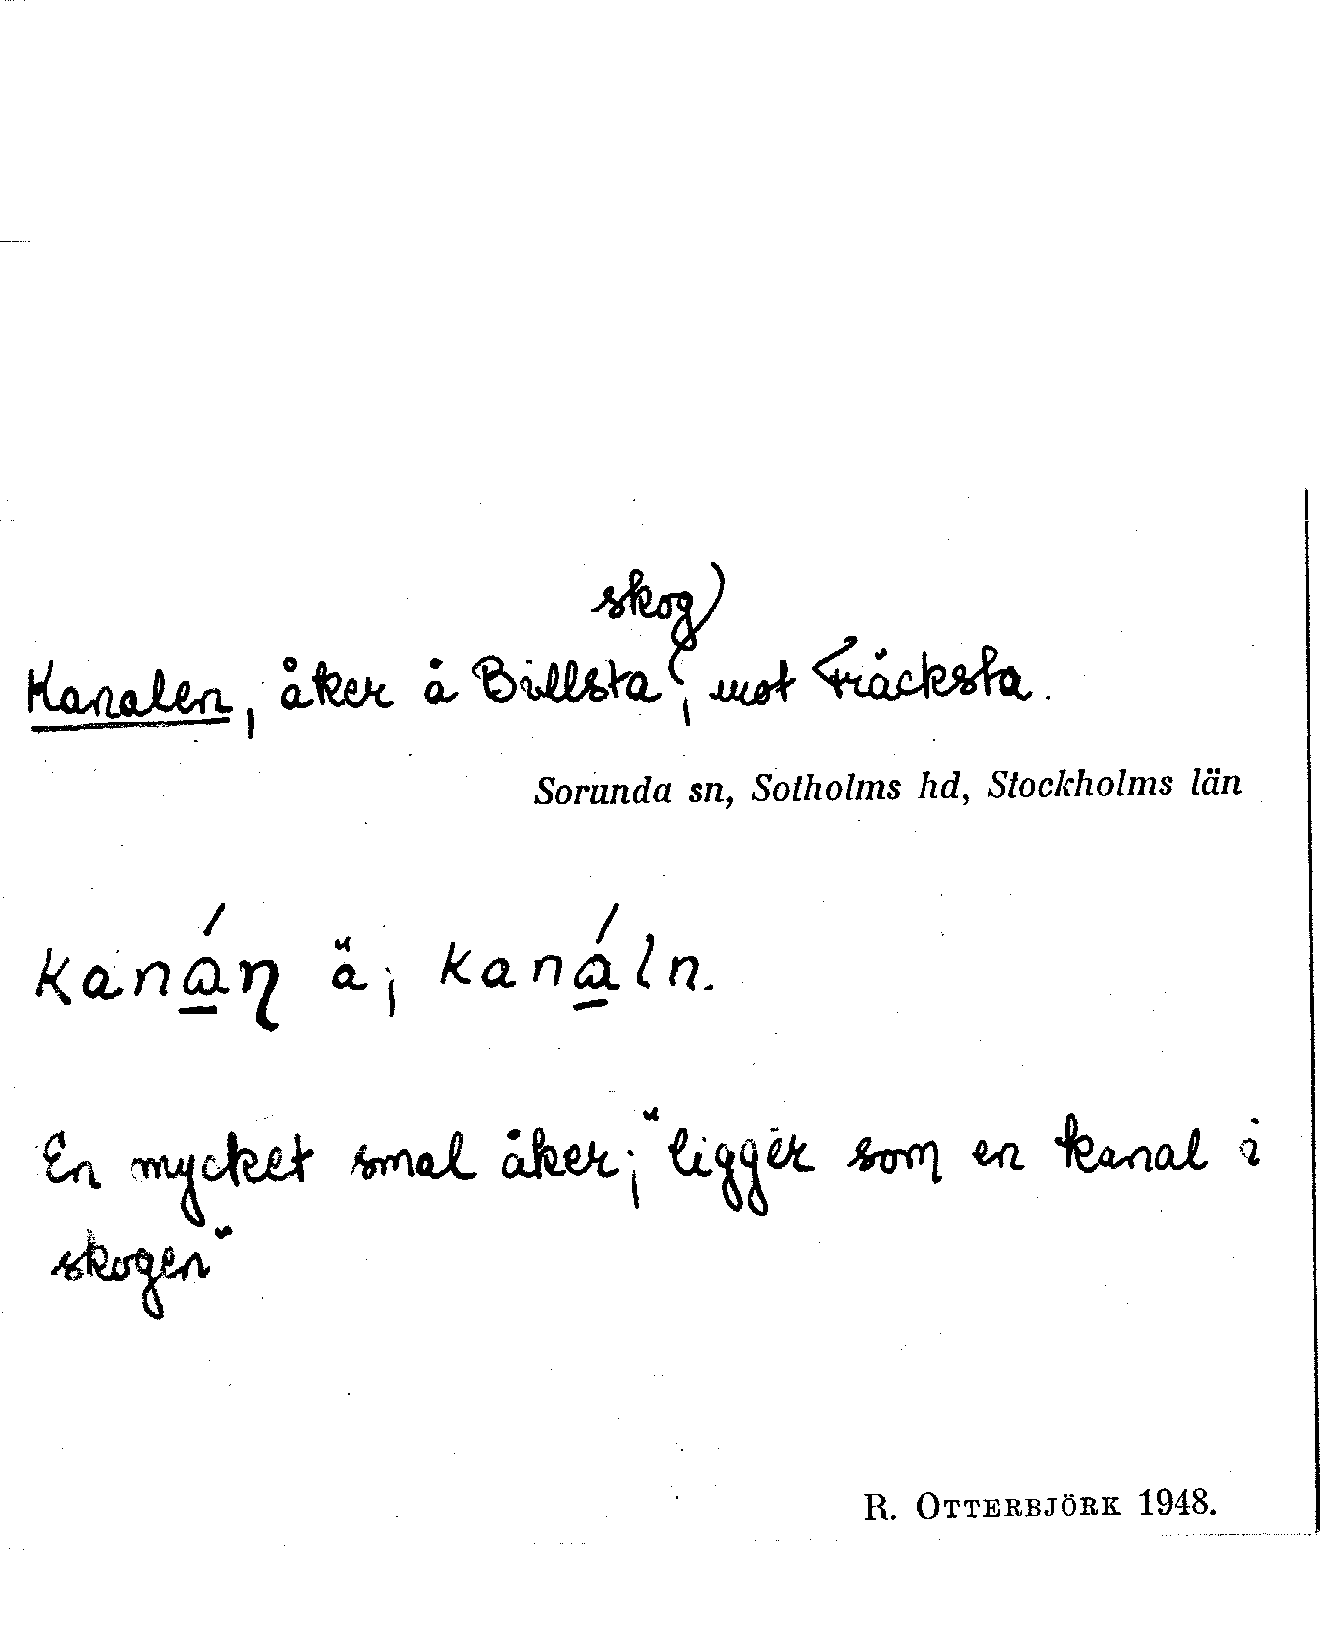 skog)
Kanalen, åker å Billsta, mot Fräcksta.
Sorunda sn, Sotholms hd, Stockholms län
kanáɳ ä, kanáln.
En mycket smal åker; "ligger som en kanal i
skogen"
R. OTTERBJÖRK 1948.